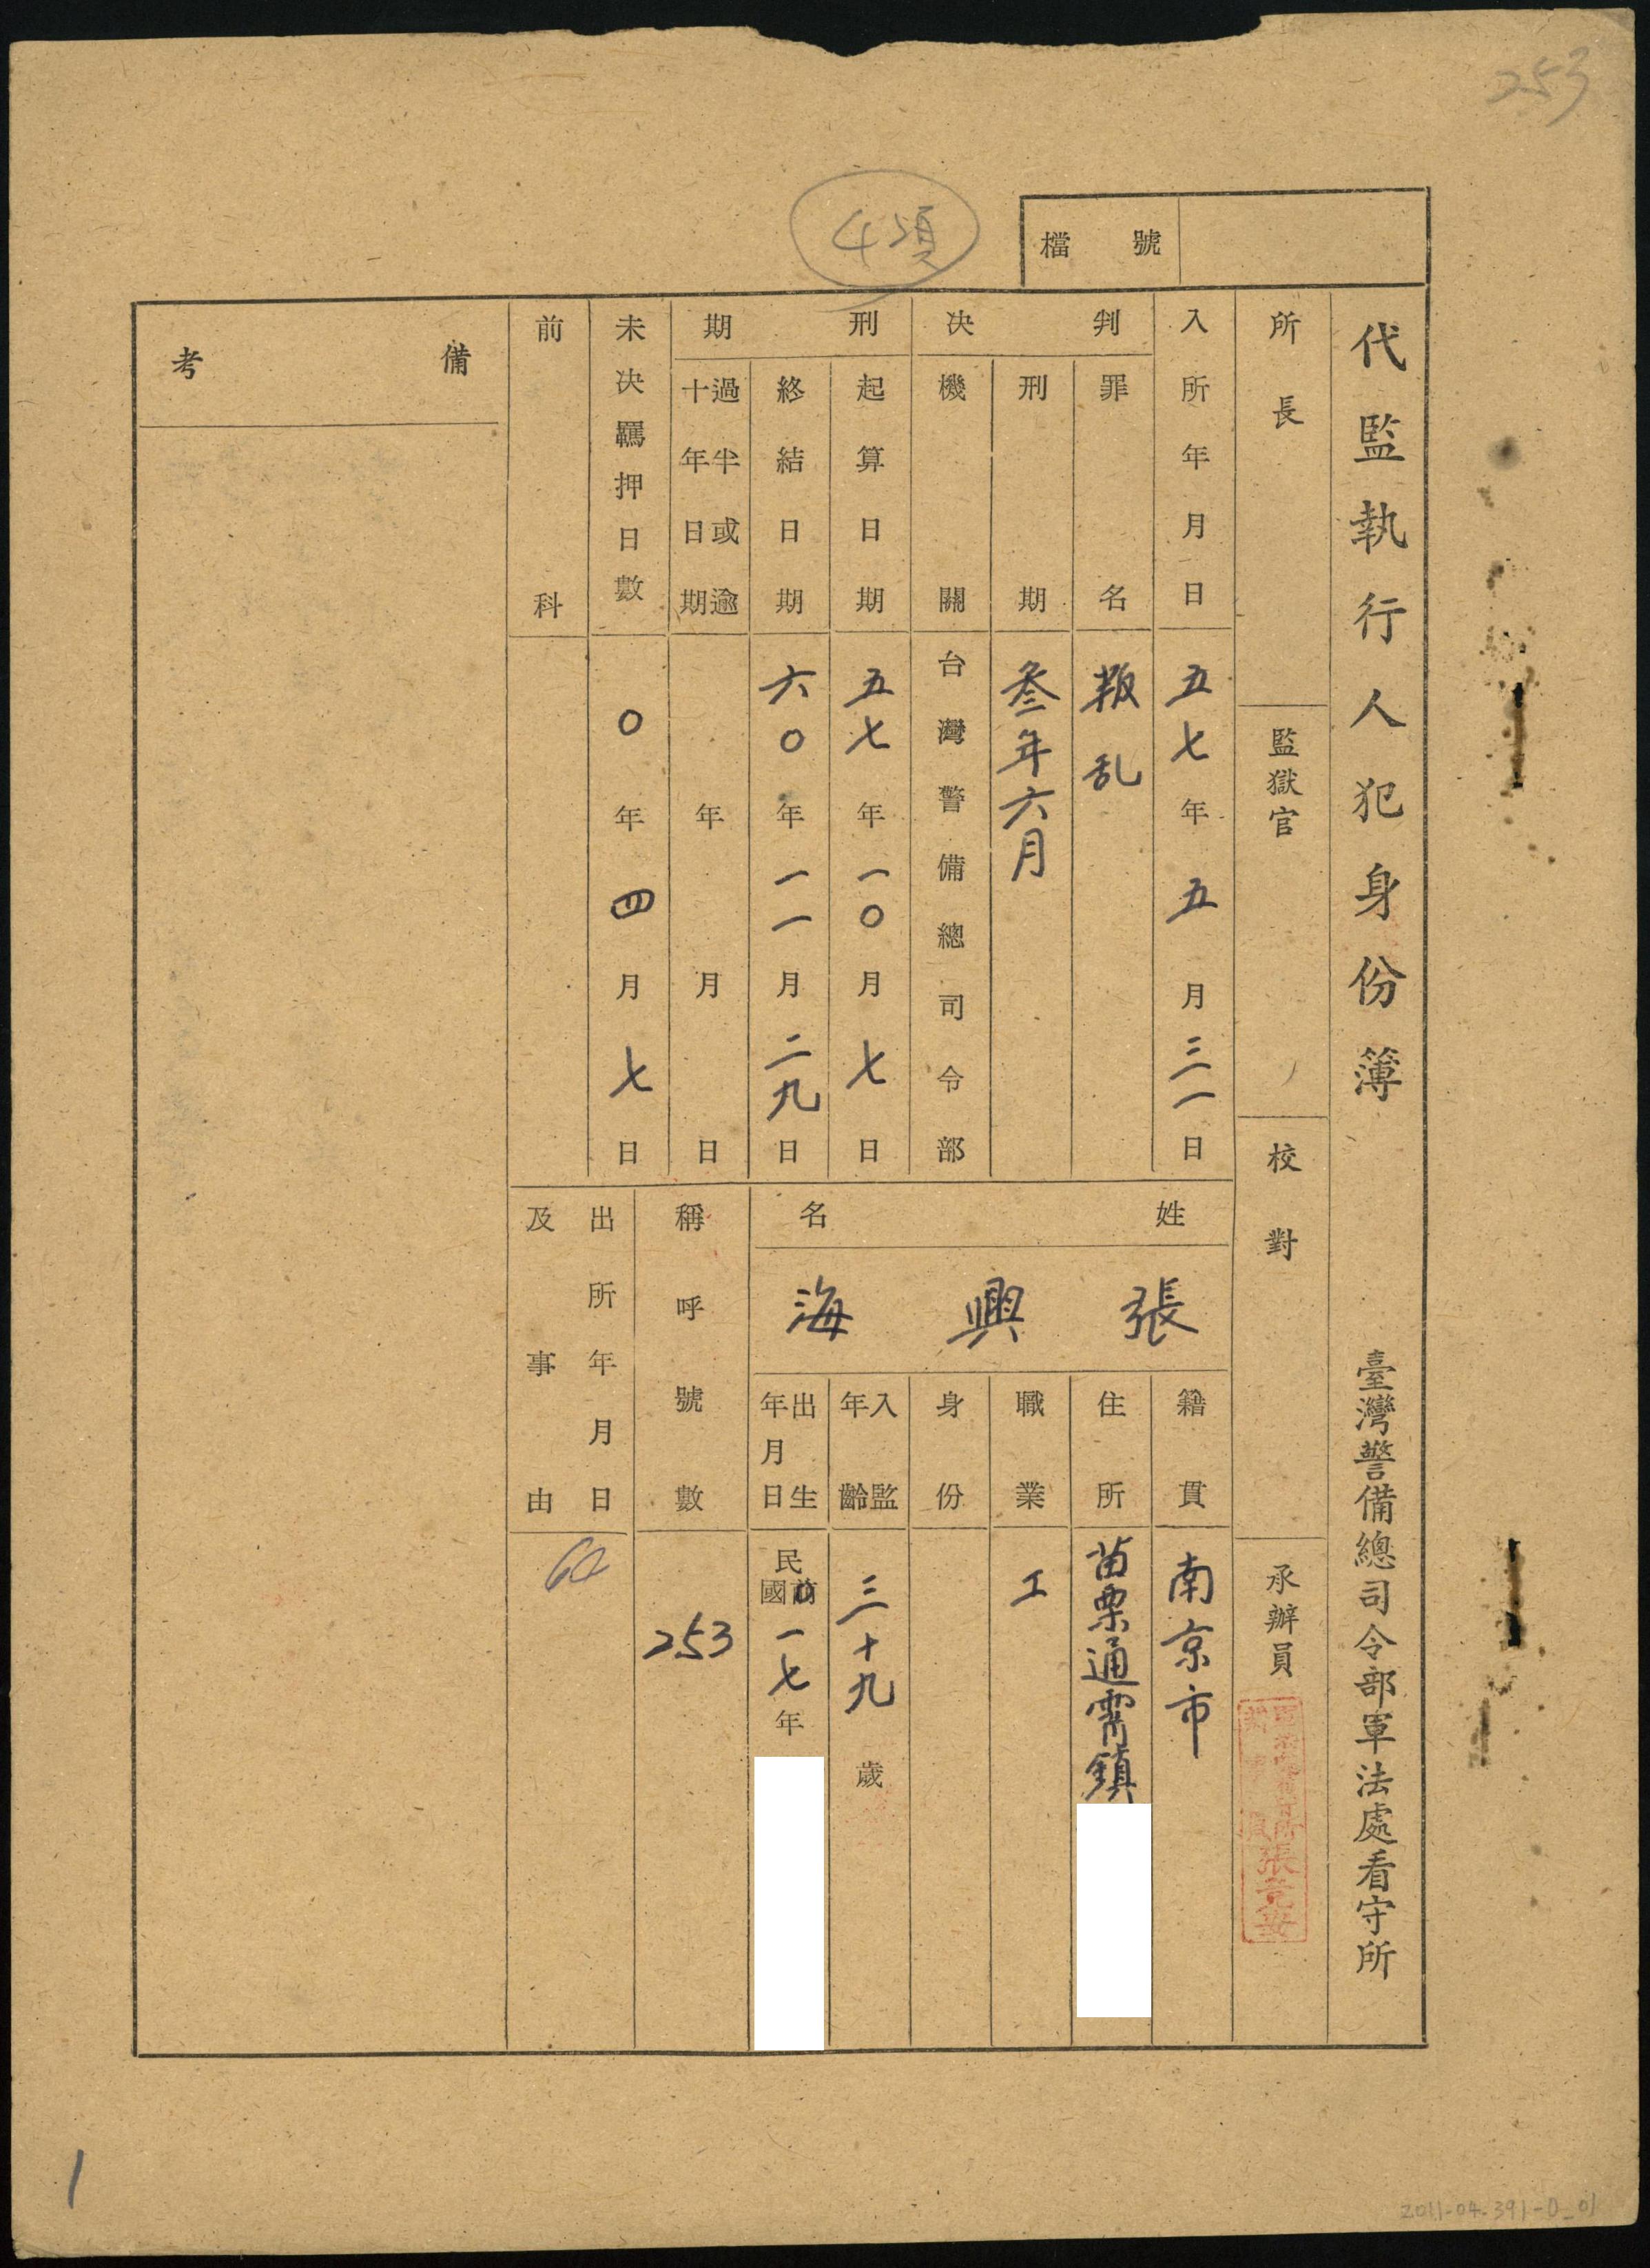 253
4項
檔號
代監執行人犯身份簿
臺灣警備總司令部軍法處看守所
所長
監獄官
校對
承辦員
入所年月日
五七年五月三一日
判決
罪名
叛乱
刑期
叁年六月
機關
台灣警備總司令部
刑期
起算日期
五七年一〇月七日
終結日期
六〇年一一月二九日
過半或逾十年日期
年月日
未決羈押日數
〇年四月七日
前科
備考
姓名
張興海
籍貫
南京市
住所
苗栗通霄鎮
職業
工
身份
入監年齡
三十九歲
出生年月日
民國前
一七年
稱呼號數
253
出所年月日
及事由
1
2011-04-391-D_01